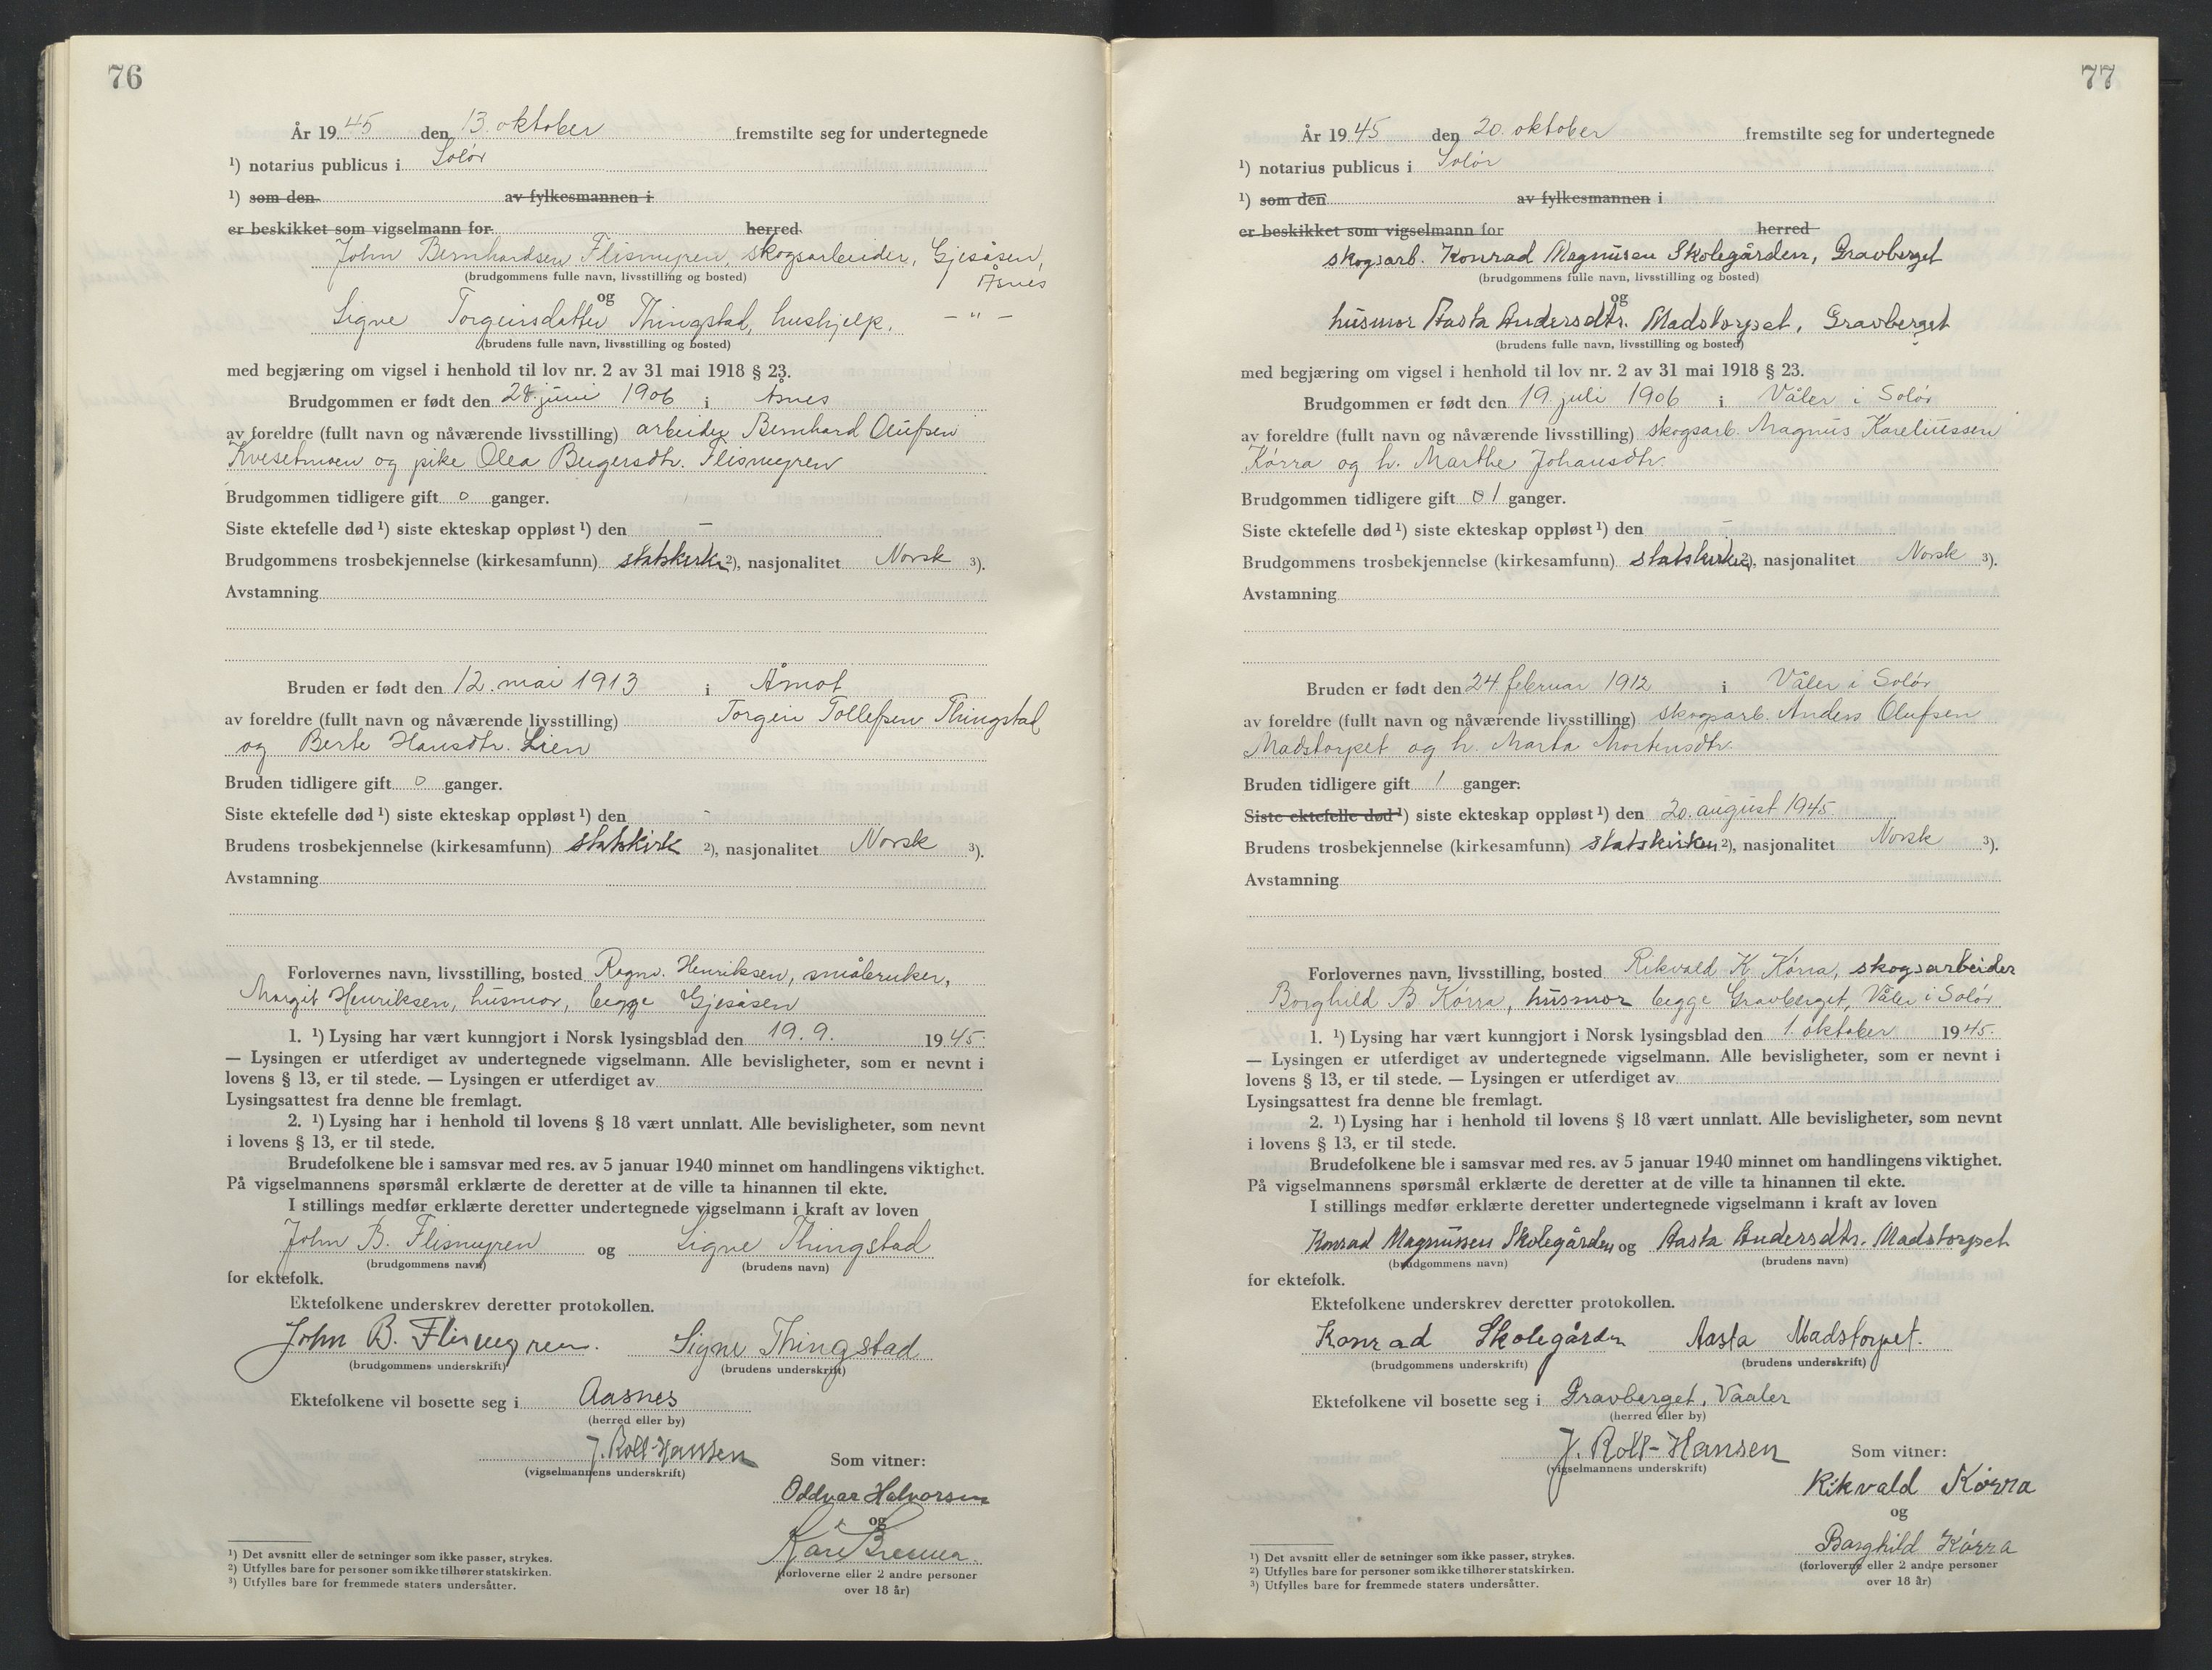 76
År 1945 den 13. oktober fremstilte seg for undertegnede
¹) notarius publicus i Solør
¹) som den av fylkesmannen i
er beskikket som vigselmann for herred
John Bernhardsen Flismyren, skogsarbeider, Gjesåsen,
Åsnes
(brudgommens fulle navn, livsstilling og bosted)
og
Signe Torgeirsdatter Thingstad, hushjelp. — " —
(brudens fulle navn, livsstilling og bosted)
med begjæring om vigsel i henhold til lov nr. 2 av 31 mai 1918 § 23.
Brudgommen er født den 28. juni 1906 i Åsnes
av foreldre (fullt navn og nåværende livsstilling) arbeider Bernhard Olufsen
Kvesetmoen og pike Olea Birgersdtr. Flismyren
Brudgommen tidligere gift 0 ganger.
Siste ektefelle død ¹) siste ekteskap oppløst ¹) den —
Brudgommens trosbekjennelse (kirkesamfunn) statskirken ²), nasjonalitet Norsk ³).
Avstamning
Bruden er født den 12. mai 1913 i Åmot
av foreldre (fullt navn og nåværende livsstilling) Torgeir Tollefsen Thingstad
og Berte Hansdtr. Lien
Bruden tidligere gift 0 ganger.
Siste ektefelle død ¹) siste ekteskap oppløst ¹) den -
Brudens trosbekjennelse (kirkesamfunn) statskirk ²), nasjonalitet Norsk ³).
Avstamning
Forlovernes navn, livsstilling, bosted Ragnv. Henriksen, småbruker,
Margit Henriksen, husmor, begge Gjesåsen
1. ¹) Lysing har vært kunngjort i Norsk lysingsblad den 19. 9. 1945.
— Lysingen er utferdiget av undertegnede vigselmann. Alle bevisligheter, som er nevnt i
lovens § 13, er til stede. — Lysingen er utferdiget av
Lysingsattest fra denne ble fremlagt.
2. ¹) Lysing har i henhold til lovens § 18 vært unnlatt. Alle bevisligheter, som nevnt
i lovens § 13, er til stede.
Brudefolkene ble i samsvar med res. av 5 januar 1940 minnet om handlingens viktighet.
På vigselmannens spørsmål erklærte de deretter at de ville ta hinannen til ekte.
I stillings medfør erklærte deretter undertegnede vigselmann i kraft av loven
John B. Flismyren og Signe Thingstad
(brudgommens navn) (brudens navn)
for ektefolk.
Ektefolkene underskrev deretter protokollen.
John B. Flismyren. Signe Thingstad
(brudgommens underskrift) (brudens underskrift)
Ektefolkene vil bosette seg i Aasnes
(herred eller by)
J. Roll-Hansen
(vigselmannens underskrift)
Som vitner:
Oddvar Halvorsen
og
Kåre
(forloverne eller 2 andre personer
over 18 år)
¹) Det avsnitt eller de setninger som ikke passer, strykes.
²) Utfylles bare for personer som ikke tilhører statskirken.
³) Utfylles bare for fremmede staters undersåtter.
77
År 1945 den 20. oktober fremstilte seg for undertegnede
¹) notarius publicus i Solør
¹) som den av fylkesmannen i
er beskikket som vigselmann for herred
skogsarb. Konrad Magnusen Skolegården, Gravberget
(brudgommens fulle navn, livsstilling og bosted)
og
husmor Aasta Andersdtr. Madstorpet, Gravberget
(brudens fulle navn, livsstilling og bosted)
med begjæring om vigsel i henhold til lov nr. 2 av 31 mai 1918 § 23.
Brudgommen er født den 19. juli 1906 i Våler i Solør
av foreldre (fullt navn og nåværende livsstilling) skogsarb. Magnus Kareliussen
Kórra og h. Marthe Johansdtr.
Brudgommen tidligere gift 0 1 ganger.
Siste ektefelle død ¹) siste ekteskap oppløst ¹) den —
Brudgommens trosbekjennelse (kirkesamfunn) statskirken ²), nasjonalitet Norsk ³).
Avstamning
Bruden er født den 24 februar 1912 i Våler i Solør
av foreldre (fullt navn og nåværende livsstilling) skogsarb. Anders Olufsen
Madstorpet og h. Marta Mortensdtr.
Bruden tidligere gift 1 ganger.
Siste ektefelle død ¹) siste ekteskap oppløst ¹) den 20. august 1945.
Brudens trosbekjennelse (kirkesamfunn) statskirken ²), nasjonalitet Norsk ³).
Avstamning
Forlovernes navn, livsstilling, bosted Rikvald K Kórra, skogsarbeider
Borghild B Kórra, husmor begge Gravberget, Våler i Solør
1. ¹) Lysing har vært kunngjort i Norsk lysingsblad den 1. oktober 1945.
— Lysingen er utferdiget av undertegnede vigselmann. Alle bevisligheter, som er nevnt i
lovens § 13, er til stede. — Lysingen er utferdiget av
Lysingsattest fra denne ble fremlagt.
2. ¹) Lysing har i henhold til lovens § 18 vært unnlatt. Alle bevisligheter, som nevnt
i lovens § 13, er til stede.
Brudefolkene ble i samsvar med res. av 5 januar 1940 minnet om handlingens viktighet.
På vigselmannens spørsmål erklærte de deretter at de ville ta hinannen til ekte.
I stillings medfør erklærte deretter undertegnede vigselmann i kraft av loven
Konrad Magnussen Skolegården og Aasta Andersdtr. Madstorpet
(brudgommens navn) (brudens navn)
for ektefolk.
Ektefolkene underskrev deretter protokollen.
Konrad Skolegården Aasta Madstorpet.
(brudgommens underskrift) (brudens underskrift)
Ektefolkene vil bosette seg i Gravberget, Vaaler
(herred eller by)
J. Roll-Hansen
(vigselmannens underskrift)
Som vitner:
Rikvald Kórra
og
Borghild Kórra
(forloverne eller 2 andre personer
over 18 år)
¹) Det avsnitt eller de setninger som ikke passer, strykes.
²) Utfylles bare for personer som ikke tilhører statskirken.
³) Utfylles bare for fremmede staters undersåtter.